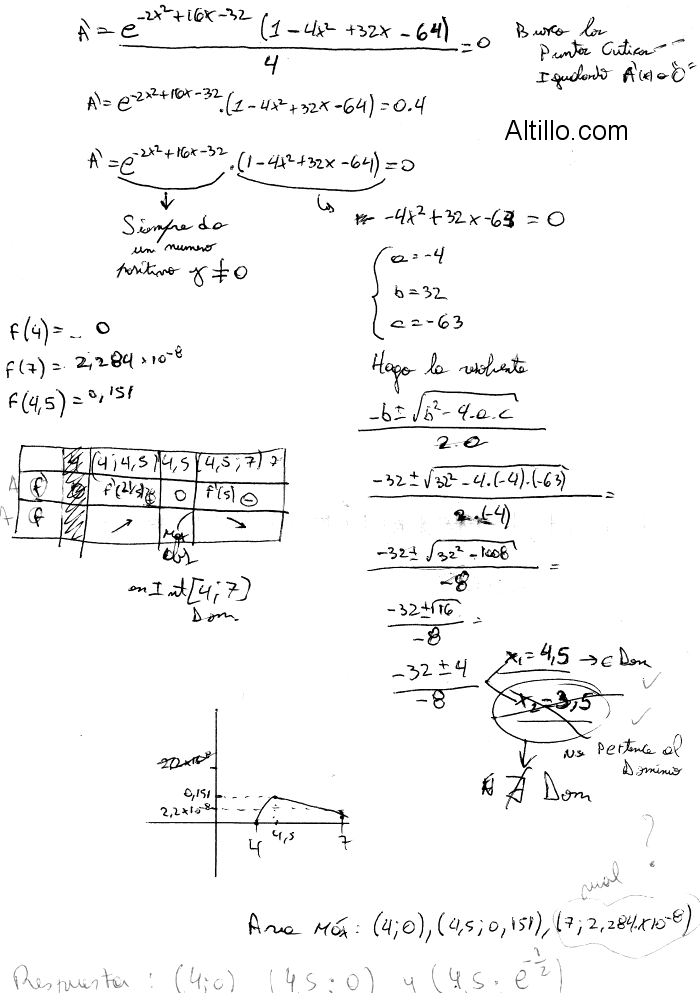 A' = e^(-2x²+16x-32) (1-4x²+32x-64) / 4 = 0
Busco los
Puntos Criticos
Igualando A'(x)=0
A' = e^(-2x²+16x-32) · (1-4x²+32x-64) = 0.4
Altillo.com
A' = e^(-2x²+16x-32) · (1-4x²+32x-64) = 0
Siempre da
un numero
positivo y ≠ 0
-4x²+32x-63 = 0
a = -4
b = 32
c = -63
f(4) = 0
f(7) = 2,284 × 10^-8
f(4,5) = 0,151
Hago la resolvente
-b ± √(b² - 4.a.c) / 2.a
4 (4;4,5) 4,5 (4,5;7) 7
f' 0 f'(5) ⊖
f ↗ Máx ↘
en Int [4;7)
Dom
-32 ± √(32² - 4·(-4)·(-63)) / 2·(-4) =
-32 ± √(32² - 1008) / -8 =
-32 ± √16 / -8 =
-32 ± 4 / -8
x₁ = 4,5 → ∈ Dom
x₂ = 3,5
No Pertenece al
Dominio
∄ Dom
0,151
2,2×10^-8
4 4,5 7
mal ?
Area Máx: (4;0), (4,5;0,151), (7;2,284×10^-8)
Respuesta: (4;0) (4,5;0) y (4,5; e^(-1/2))